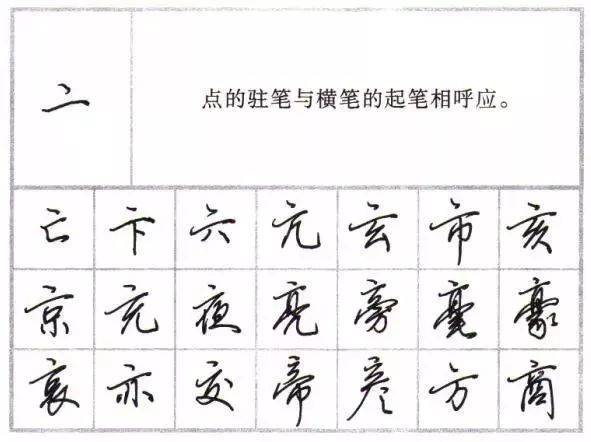 亠 点的驻笔与横笔的起笔相呼应。
亡 卞 六 亢 玄 市 亥
京 充 夜 亮 旁 毫 豪
哀 亦 交 帝 彦 方 商